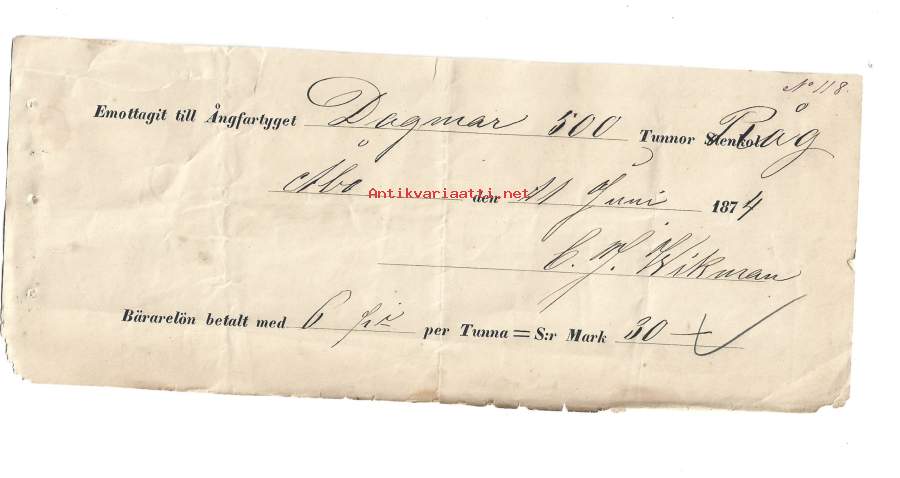 No 118.
Emottagit till Ångfartyget Dagmar 500 Tunnor Stenkol Råg
Åbo den 11 Juni 1874
Antikvariaatti.net
C. J. Wikman
Bärarelön betalt med 6 per Tunna = S:r Mark 30